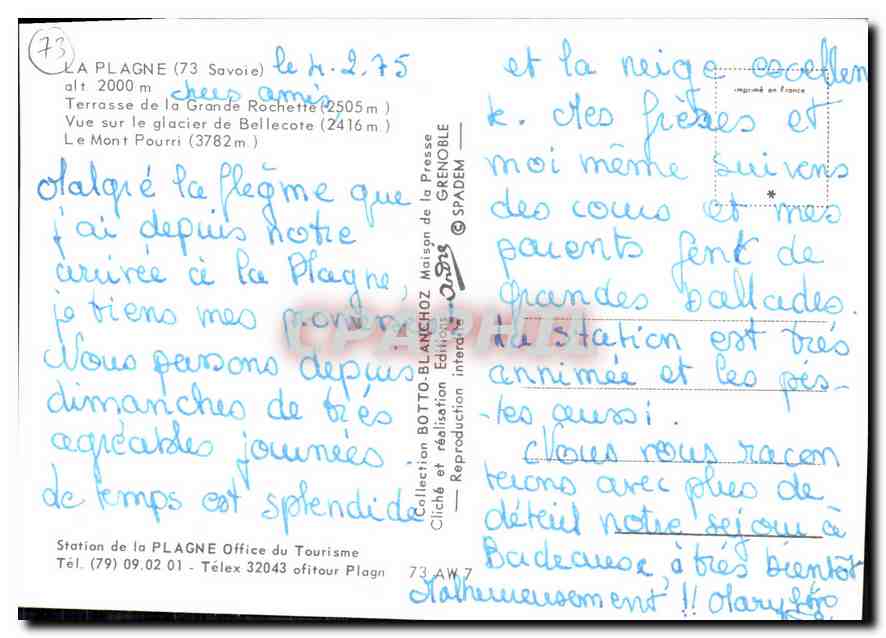 73
LA PLAGNE (73 Savoie) le 4.2.75
alt 2000 m chers amis,
Terrasse de la Grande Rochette (2505 m)
Vue sur le glacier de Bellecote (2416 m.)
Le Mont Pourri (3782m.)
Malgré la flègme que
j'ai depuis notre
arrivée à la Plagne,
je tiens mes
Nous passons depuis
dimanches de très
agréables journées.
Le temps est splendide
Station de la PLAGNE Office du Tourisme
Tél. (79) 09.02 01 - Télex 32043 ofitour Plagn
73 AW 7
Collection BOTTO-BLANCHOZ Maison de la Presse
Cliché et réalisation Editions André GRENOBLE
Reproduction interdite © SPADEM
CPAPHIL
imprimé en france
*
et la neige excellen
te. Mes frères et
moi même suivens
des cours et mes
parents font de
grandes ballades.
La station est très
annimée et les pis-
-tes aussi.
Nous vous racon
terons avec plus de
détail notre séjour à
Bordeaux, à très bientôt
Malheureusement !!